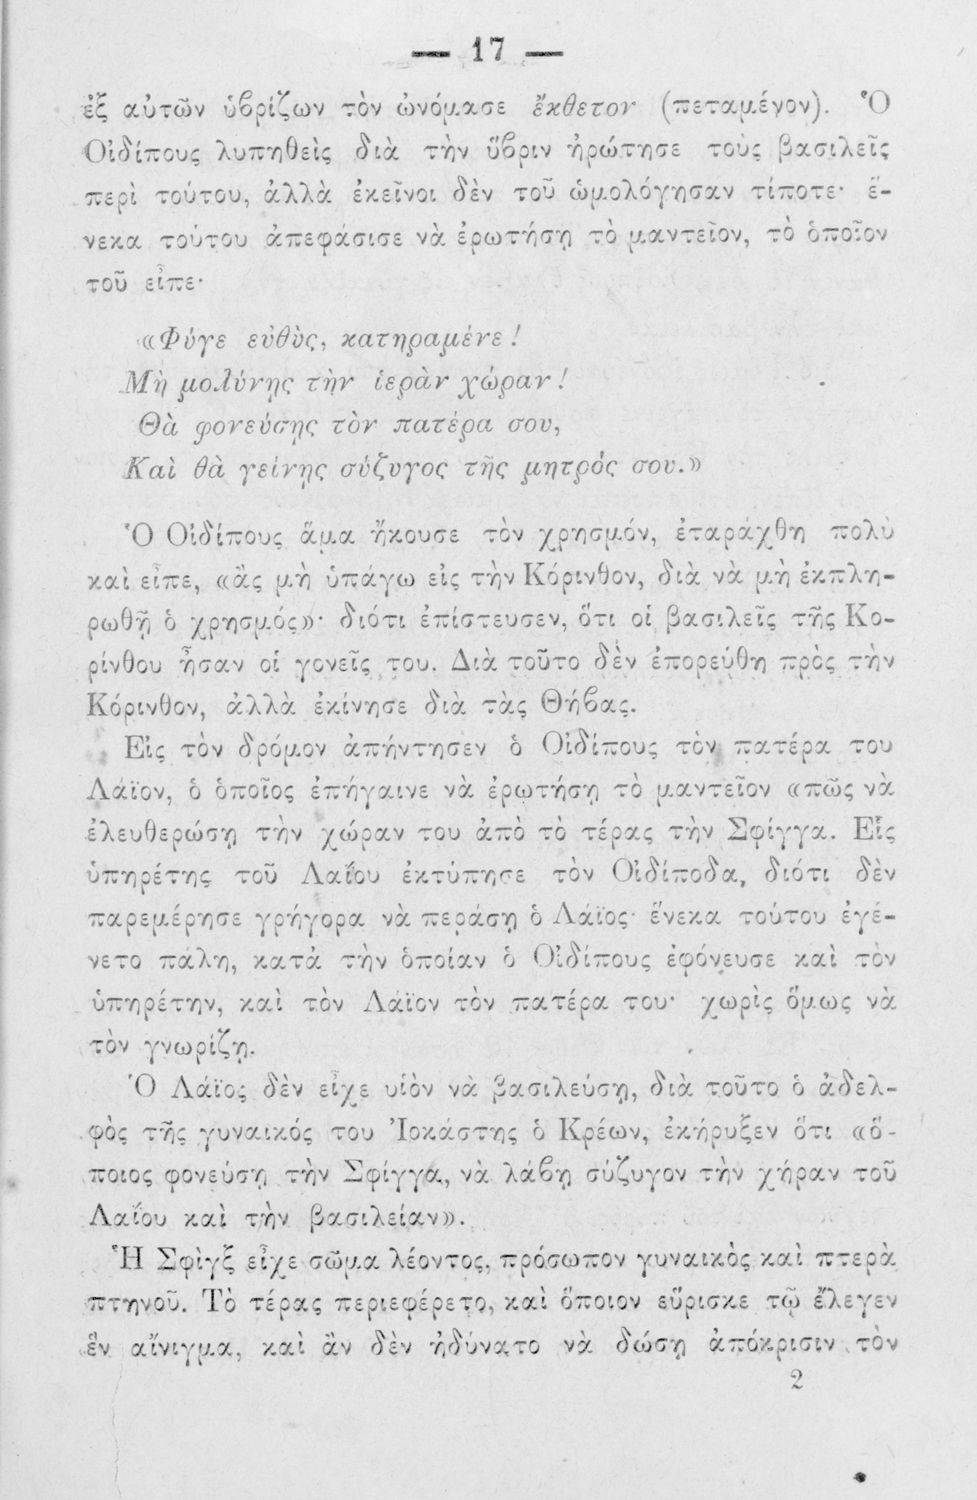 — 17 —
ἐξ αὐτῶν ὑβρίζων τὸν ὠνόμασε ἔκθετον (πεταμένον). Ὁ
Οἰδίπους λυπηθεὶς διὰ τὴν ὕβριν ἠρώτησε τοὺς βασιλεῖς
περὶ τούτου, ἀλλὰ ἐκεῖνοι δὲν τοῦ ὡμολόγησαν τίποτε· ἕ-
νεκα τούτου ἀπεφάσισε νὰ ἐρωτήσῃ τὸ μαντεῖον, τὸ ὁποῖον
τοῦ εἶπε·
«Φύγε εὐθὺς, κατηραμένε!
Μὴ μολύνῃς τὴν ἱερὰν χώραν!
Θὰ φονεύσῃς τὸν πατέρα σου,
Καὶ θὰ γείνῃς σύζυγος τῆς μητρός σου.»
Ὁ Οἰδίπους ἅμα ἤκουσε τὸν χρησμόν, ἐταράχθη πολὺ
καὶ εἶπε, «ἂς μὴ ὑπάγω εἰς τὴν Κόρινθον, διὰ νὰ μὴ ἐκπλη-
ρωθῇ ὁ χρησμός»· διότι ἐπίστευσεν, ὅτι οἱ βασιλεῖς τῆς Κο-
ρίνθου ἦσαν οἱ γονεῖς του. Διὰ τοῦτο δὲν ἐπορεύθη πρὸς τὴν
Κόρινθον, ἀλλὰ ἐκίνησε διὰ τὰς Θήβας.
Εἰς τὸν δρόμον ἀπήντησεν ὁ Οἰδίπους τὸν πατέρα του
Λάϊον, ὁ ὁποῖος ἐπήγαινε νὰ ἐρωτήσῃ τὸ μαντεῖον «πῶς νὰ
ἐλευθερώσῃ τὴν χώραν του ἀπὸ τὸ τέρας τὴν Σφίγγα. Εἷς
ὑπηρέτης τοῦ Λαΐου ἐκτύπησε τὸν Οἰδίποδα, διότι δὲν
παρεμέρησε γρήγορα νὰ περάσῃ ὁ Λάϊος· ἕνεκα τούτου ἐγέ-
νετο πάλη, κατὰ τὴν ὁποίαν ὁ Οἰδίπους ἐφόνευσε καὶ τὸν
ὑπηρέτην, καὶ τὸν Λάϊον τὸν πατέρα του· χωρὶς ὅμως νὰ
τὸν γνωρίζῃ.
Ὁ Λάϊος δὲν εἶχε υἱὸν νὰ βασιλεύσῃ, διὰ τοῦτο ὁ ἀδελ-
φὸς τῆς γυναικός του Ἰοκάστης ὁ Κρέων, ἐκήρυξεν ὅτι «ὅ-
ποιος φονεύσῃ τὴν Σφίγγα, νὰ λάβῃ σύζυγον τὴν χήραν τοῦ
Λαΐου καὶ τὴν βασιλείαν».
Ἡ Σφὶγξ εἶχε σῶμα λέοντος, πρόσωπον γυναικὸς καὶ πτερὰ
πτηνοῦ. Τὸ τέρας περιεφέρετο, καὶ ὅποιον εὕρισκε τῷ ἔλεγεν
ἓν αἴνιγμα, καὶ ἂν δὲν ἠδύνατο νὰ δώσῃ ἀπόκρισιν τὸν
2